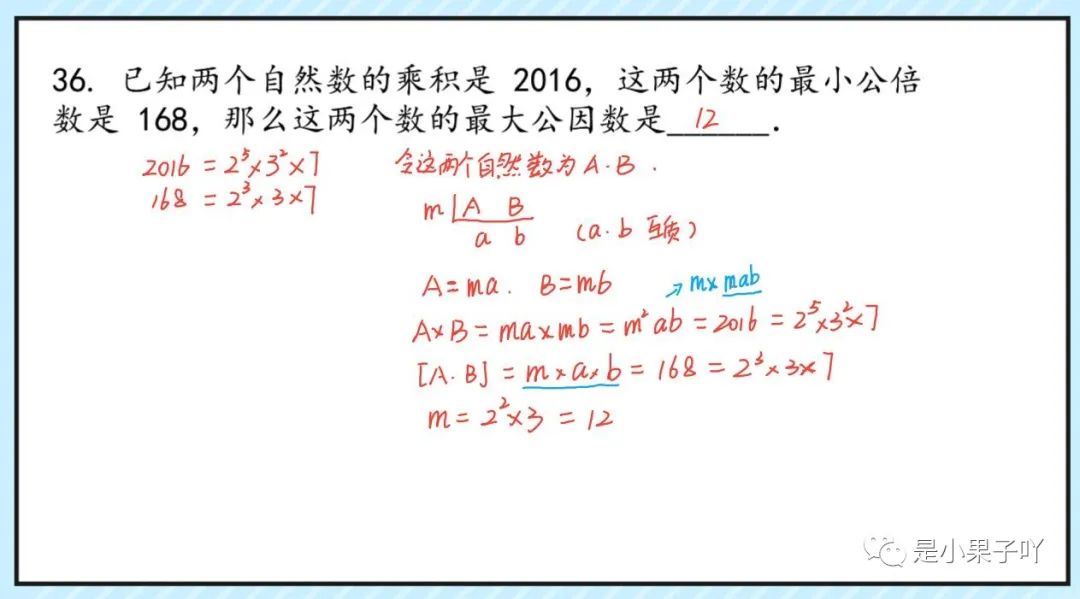 36. 已知两个自然数的乘积是 2016，这两个数的最小公倍
数是 168，那么这两个数的最大公因数是 12 .
2016 = 2⁵×3²×7
168 = 2³×3×7
令这两个自然数为A.B.
m A B
a b (a.b 互质)
A=ma. B=mb
→ m×mab
A×B = ma×mb = m²ab = 2016 = 2⁵×3²×7
[A.B] = m×a×b = 168 = 2³×3×7
m = 2²×3 = 12
是小果子吖